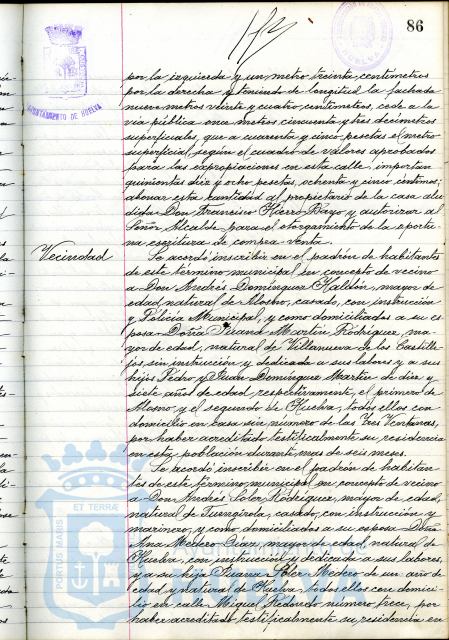 86
AYUNTAMIENTO DE HUELVA
por la izquierda y un metro treinta centímetros
por la derecha y teniendo de longitud la fachada
nueve metros veinte y cuatro centímetros, cede a la
vía pública once metros cincuenta y tres decímetros
superficiales, que a cuarenta y cinco pesetas el metro
superficial, según el cuadro de valores aprobados
para las expropiaciones en esta calle, importan
quinientas diez y ocho pesetas, ochenta y cinco céntimos;
abonar esta cantidad al propietario de la casa alu-
dida Don Francisco Hierro Bayo y autorizar al
Señor Alcalde para el otorgamiento de la oportu-
na escritura de compra-venta.
Vecindad
Se acordó inscribir en el padrón de habitantes
de este término municipal en concepto de vecino
a Don Andrés Domínguez Haldón, mayor de
edad, natural de Alosno, casado, con instrucción
y Policía Municipal, y como domiciliados a su es-
posa Doña Juana Martín Rodríguez, ma-
yor de edad, natural de Villanueva de los Castille-
jos, sin instrucción y dedicada a sus labores y a sus
hijos Pedro y Juan Domínguez Martín de diez y
siete años de edad, respectivamente, el primero de
Alosno y el segundo de Huelva, todos ellos con
domicilio en casa sin número de las Tres Ventanas,
por haber acreditado testificalmente su residencia
en esta población durante mas de seis meses.
Se acordó inscribir en el padrón de habitan-
tes de este término municipal en concepto de vecino
a Don Andrés Soler Rodríguez, mayor de edad,
natural de Fuengirola, casado, con instrucción y
marinero, y como domiciliados a su esposa Doña
Ana Medero Diaz, mayor de edad, natural de
Huelva, con instrucción y dedicada a sus labores,
y a su hija Juana Soler Medero de un año de
edad y natural de Huelva, todos ellos con domici-
lio en calle Miguel Redondo número trece, por
haber acreditado testificalmente su residencia en
ET TERRÆ
PORTUS MARIS
Ayuntamiento de